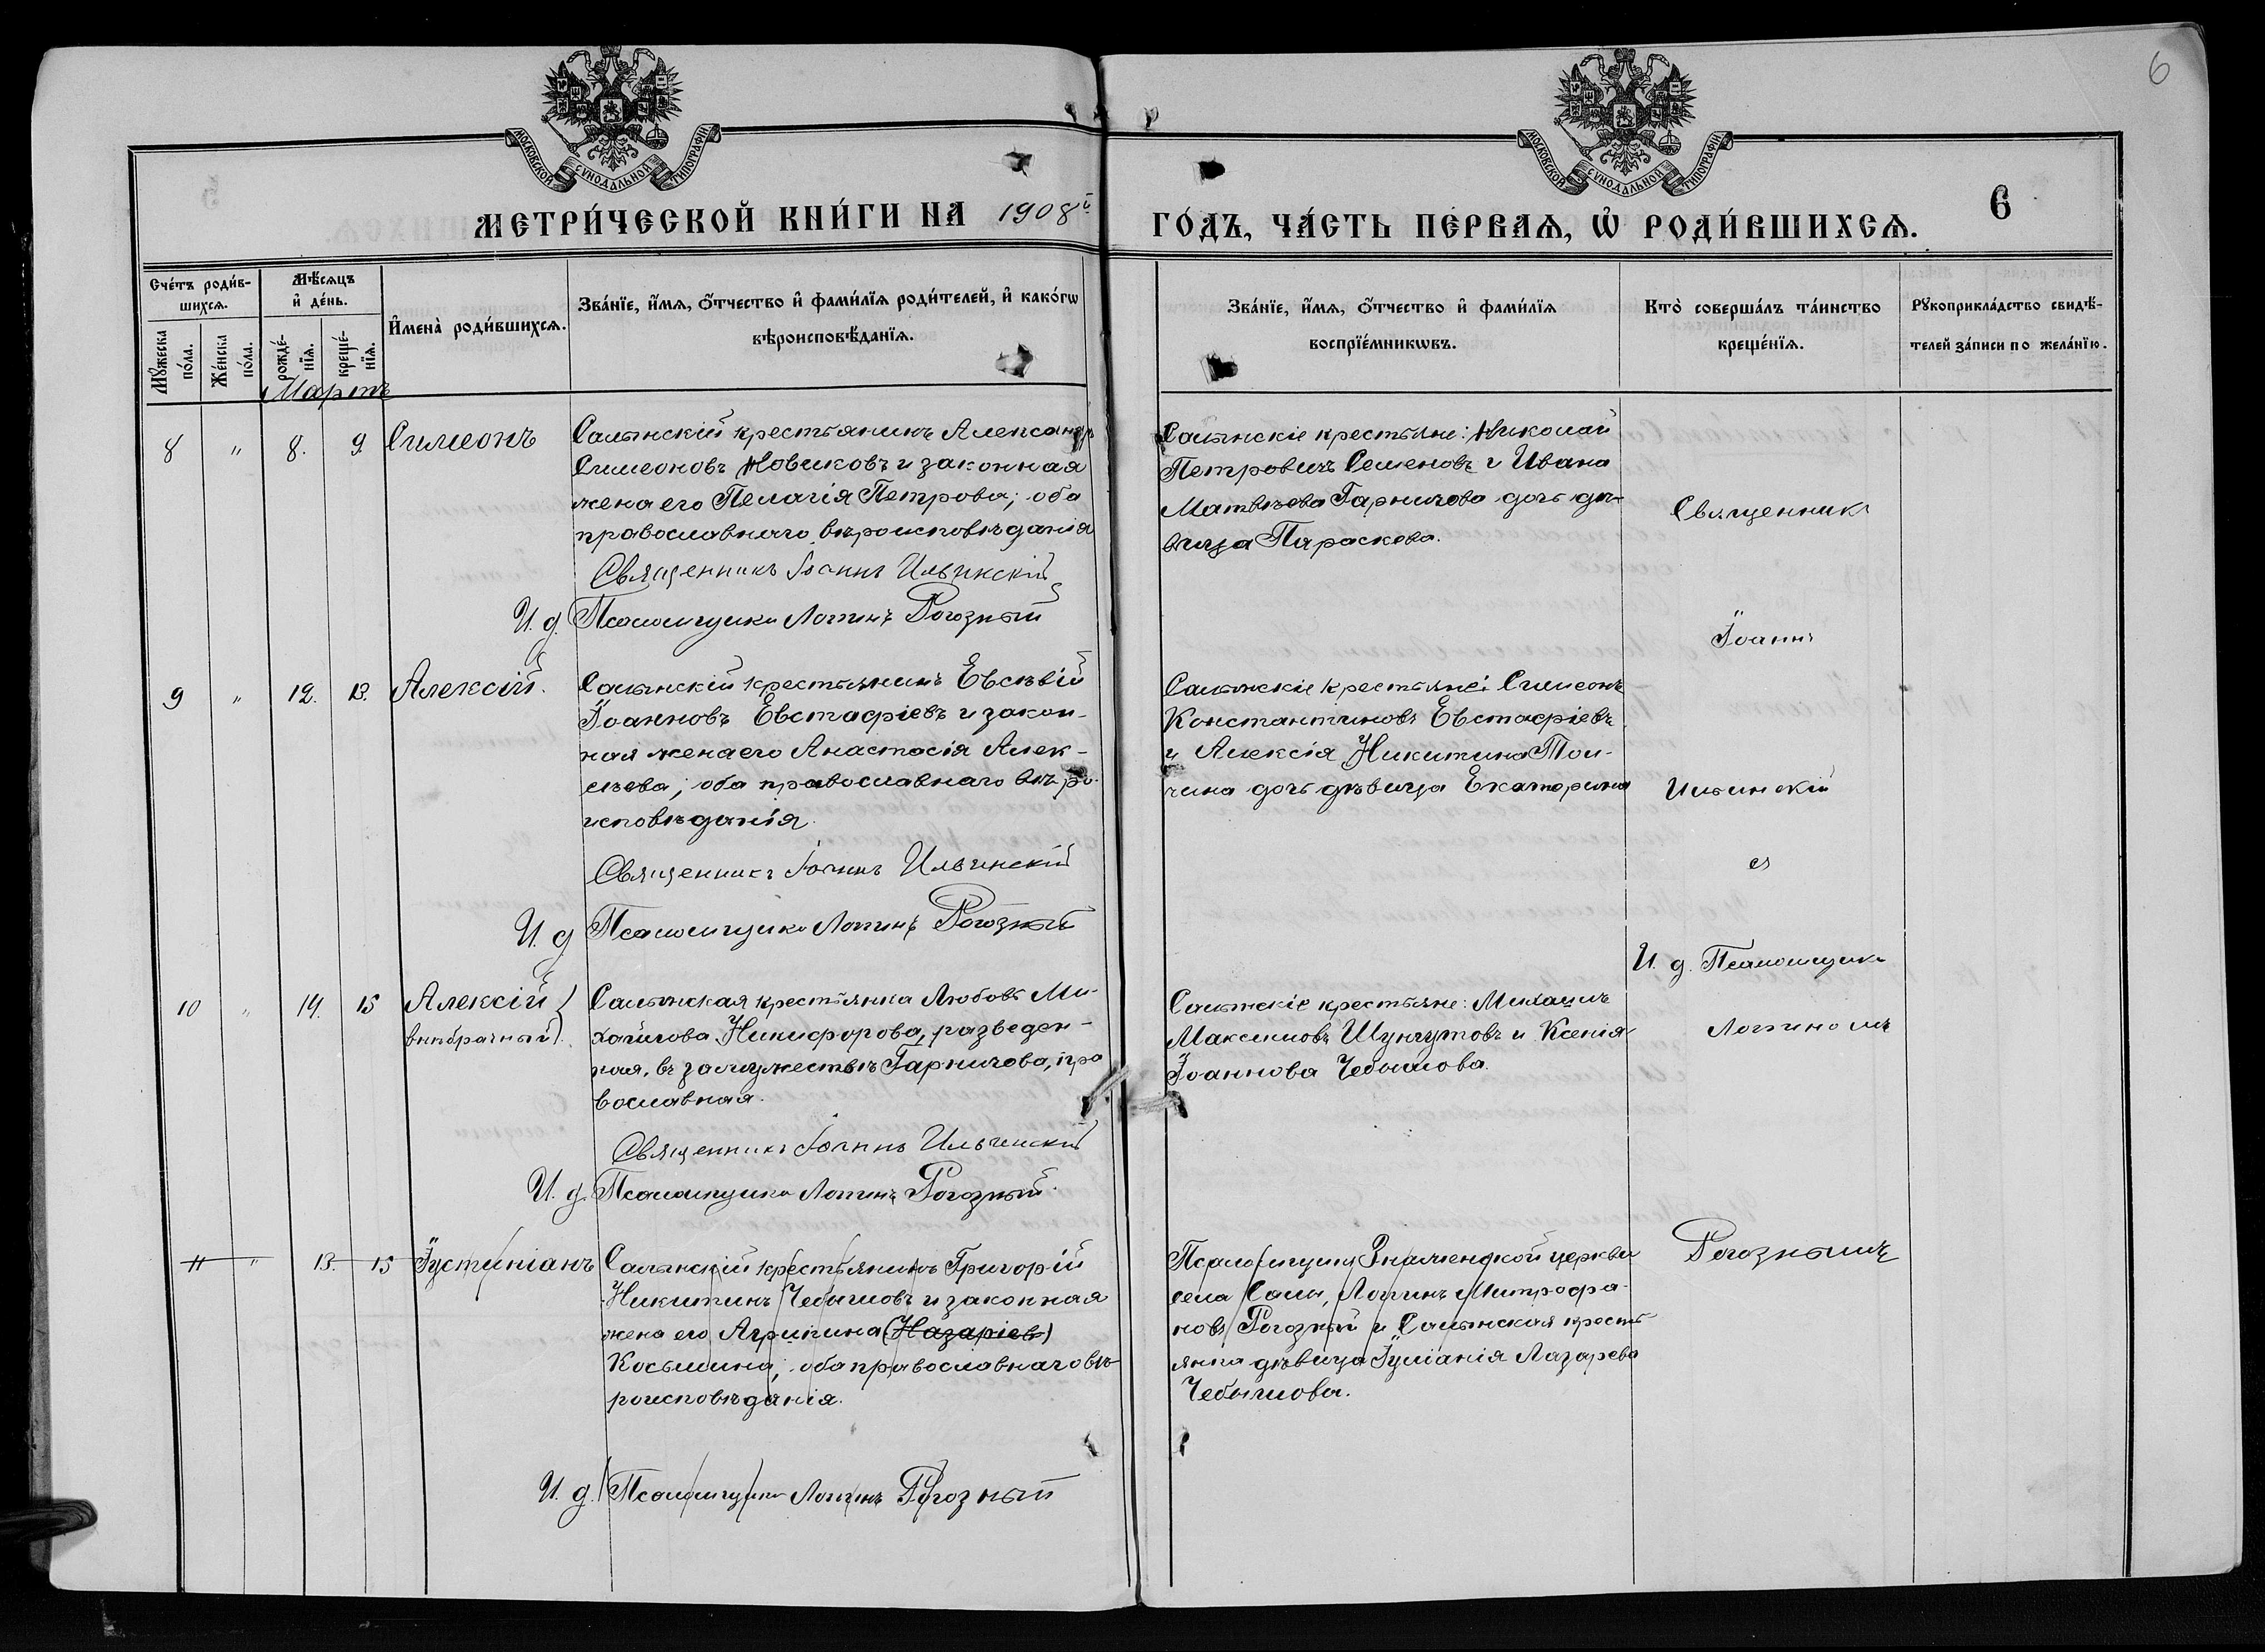 6
МОСКОВСКОЙ СѴНОДАЛЬНОЙ ТИПОГРАФІИ
МОСКОВСКОЙ СѴНОДАЛЬНОЙ ТИПОГРАФІИ
МЕТРИ́ЧЕСКОЙ КНИ́ГИ НА 1908й
ГО́ДЪ, ЧА́СТЬ ПЕ́РВАѦ, Ѡ҆ РОДИ́ВШИХСѦ.
6
Сче́тъ роди́в-
шихсѧ.
Мѣ́сѧцъ
и҆ де́нь.
Мꙋ́жеска
по́ла.
Же́нска
по́ла.
рожде́-
нїѧ.
креще́-
нїѧ.
И҆мена̀ роди́вшихсѧ.
Зва́нїе, и҆́мѧ, ѻ҆́тчество и҆ фами́лїѧ роди́телей, и҆ како́гѡ
вѣроисповѣ́данїѧ.
Зва́нїе, и҆́мѧ, ѻ҆́тчество и҆ фами́лїѧ
воспрїе́мникѡвъ.
Кто̀ соверша́лъ та́инство
креще́нїѧ.
Рꙋкоприкла́дство свидѣ́-
телей за́писи по жела́нїю.
Мартъ
8 " 8. 9. Симеонъ
Салынскій крестьянинъ Александръ
Симеоновъ Новиковъ и законная
жена его Пелагія Петрова; оба
православнаго вѣроисповѣданія
Священникъ Іоаннъ Ильинскій
И. д. Псаломщика Логинъ Рогозный
Салынскіе крестьяне: Николай
Петровичъ Семеновъ и Ивана
Матвѣева Гарничева дочь дѣ-
вица Параскева.
9 " 12. 13. Алексій.
Салынскій крестьянинъ Евсѣвій
Іоанновъ Евстафіевъ и закон-
ная жена его Анастасія Алек-
сѣева; оба православнаго вѣро-
исповѣданія.
Священникъ Іоаннъ Ильинскій
И. д Псаломщика Логинъ Рогозный
Салынскіе крестьяне: Симеонъ
Константиновъ Евстафіевъ
и Алексія Никитина
дочь дѣвица Екатерина
10 " 14. 15 Алексій
(внѣбрачный).
Салынская крестьянка Любовь Ми-
хайлова Никифорова, разведен-
ная, въ замужествѣ Гарничева, пра
вославная.
Священникъ Іоаннъ Ильинскій
И. д. Псаломщика Логинъ Рогозный.
Салынскіе крестьяне: Михаилъ
Максимовъ Шунгутовъ и Ксенія
Іоаннова Чебышова.
11 " 13. 15 Іустиніанъ
Салынскій крестьянинъ Григорій
Никитинъ Чебышовъ и законная
жена его Агрипина (Назаріев)
Косьмина; оба православнаго вѣ-
роисповѣданія.
И. д. Псаломщика Логинъ Рогозный
Псаломщикъ Знаменской церкви
села Салы, Логинъ Митрофа-
новъ Рогозный и Салынская кресть-
янка дѣвица Іуліанія Лазарева
Чебышова.
Священникъ
Іоаннъ
Ильинскій
съ
И. д. Псаломщика
Логиномъ
Рогознымъ